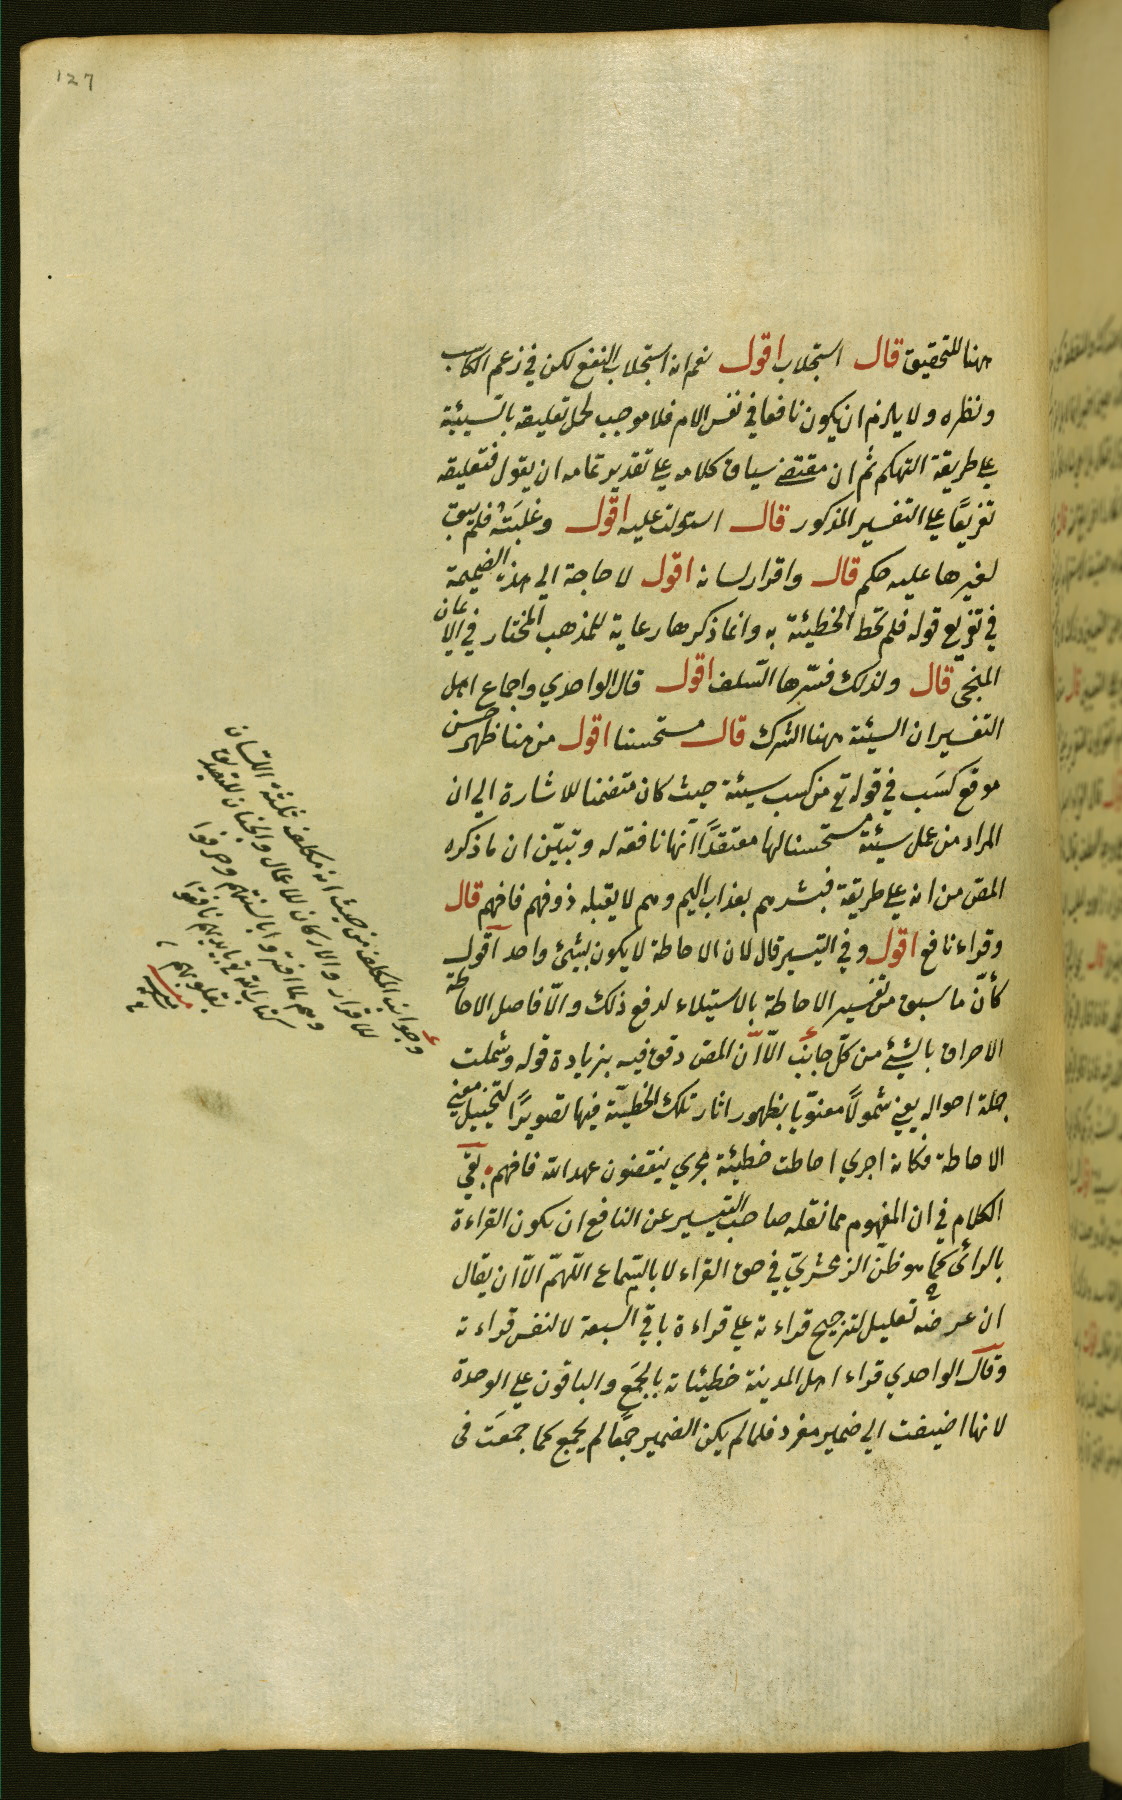 127
ههنا للتحقيق قال استجلاب اقول نعم انه استجلاب النفع لكن في زعم الكاسب
ونظره ولا يلزم ان يكون نافعا في نفس الامر فلا موجب لحمل تعليقه بالسيئة
على طريقة التهكم ثم ان مقتضى سياق كلامه على تقدير تمامه ان يقول فتعليقه
تفريعًا على التفسير المذكور قال استولت عليه اقول وغلبَتْه فلم يبق
لغيرها عليه حكم قال واقرار لسانه اقول لا حاجة الى هذه الضميمة
في تفريع قوله فلم تحط الخطيئة به وانما ذكرها رعاية للمذهب المختار في الايمان
المنجي قال ولذلك فسّرها السّلف اقول قال الواحدي واجماع اهل
التفسير ان السيئة ههنا الشرك قال مستحسنا اقول من هنا ظهر حسن
موقع كسَب في قوله تع من كسب سيئة حيث كان متضمنا للاشارة الى ان
المراد من عمل سيئة مستحسنا لها معتقدًا انّها نافعة له وتبيّن ان ما ذكره
المص من انه على طريقة فبشرهم بعذاب اليم وهم لا يقبله ذوفهم فافهم قال
وقراء نافع اقول وفي التيسير قال لان الاحاطة لا يكون بشيئ واحد اقول
كأنّ ما سبق من تفسير الاحاطة بالاستيلاء لدفع ذلك والّا فاصل الاحاطة
الاحداق بالشيئ من كلّ جانب الّا انّ المص دقق فيه بزيادة قوله وشملت
جملة احواله يعني شمولًا معنويّا بظهور اثار تلك الخطيّة فيها تصويرًا لتخييل معنى
الاحاطة فكانه اجرى احاطت خطيئة مجرى ينقضون عهد الله فافهم بقي
الكلام في ان المفهوم مما نقله صاحب التيسير عن النافع ان يكون القراءة
بالرائى كما هو ظنّ الزمخشريّ في حق القراء لا بالسّماع اللّهمّ الّا ان يقال
ان غرضه تعليل لترجيح قراءته على قراءة باقي السبعة لا لنفس قراءته
وقال الواحدي قراء اهل المدينة خطيئاته بالجمَع والباقون على الوحدة
لانها اضيفت الى ضمير مفرد فلما لم يكن الضمير جمعًا لم يجمع كما جمعَت في
وجوانب المكلف من حيث انه مكلف ثلثة اللسان
للاقرار والاركان للاعمال والجنان للتصديق
وهم لما افتروا بالسنتهم وحرفوا
كتاب الله تع بايديهم نافقوا
بقلوبهم